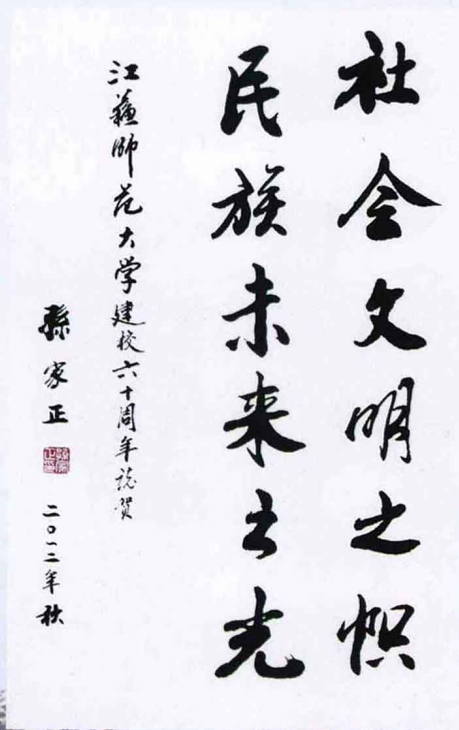 社会文明之帜
民族未来之光
江蘇師范大学建校六十周年誌贺
孫家正
二〇一二年秋